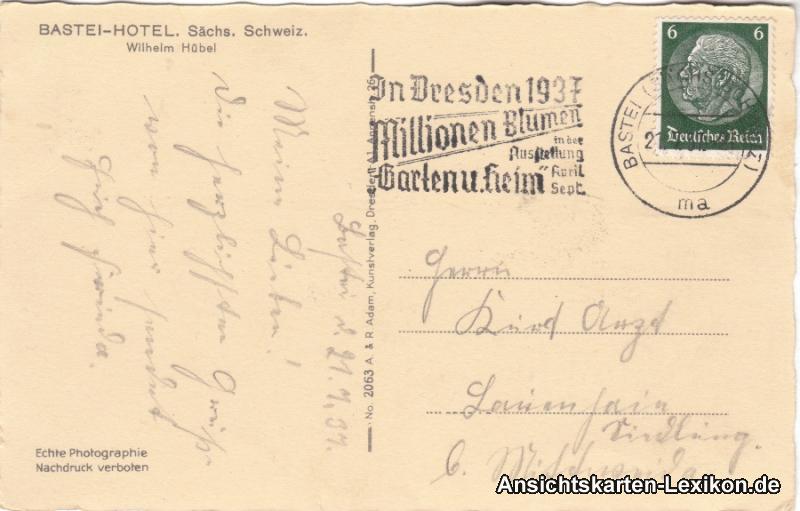 BASTEI-HOTEL. Sächs. Schweiz.
Wilhelm Hübel
Bastei d. 21.7.37.
Meine Lieben!
Die herzlichsten Grüße
von hier sendet
Euch
Echte Photographie
Nachdruck verboten
No. 2063 A. & R. Adam, Kunstverlag, Dresden
In Dresden 1937
Millionen Blumen
in der
Ausstellung
April
Garten u. Heim"
Sept.
6 6
Deutsches Reich
BASTEI
ma
Herrn
Kurd Arzd
Lauenhain
Siedlung.
b. Mittweida
Ansichtskarten-Lexikon.de